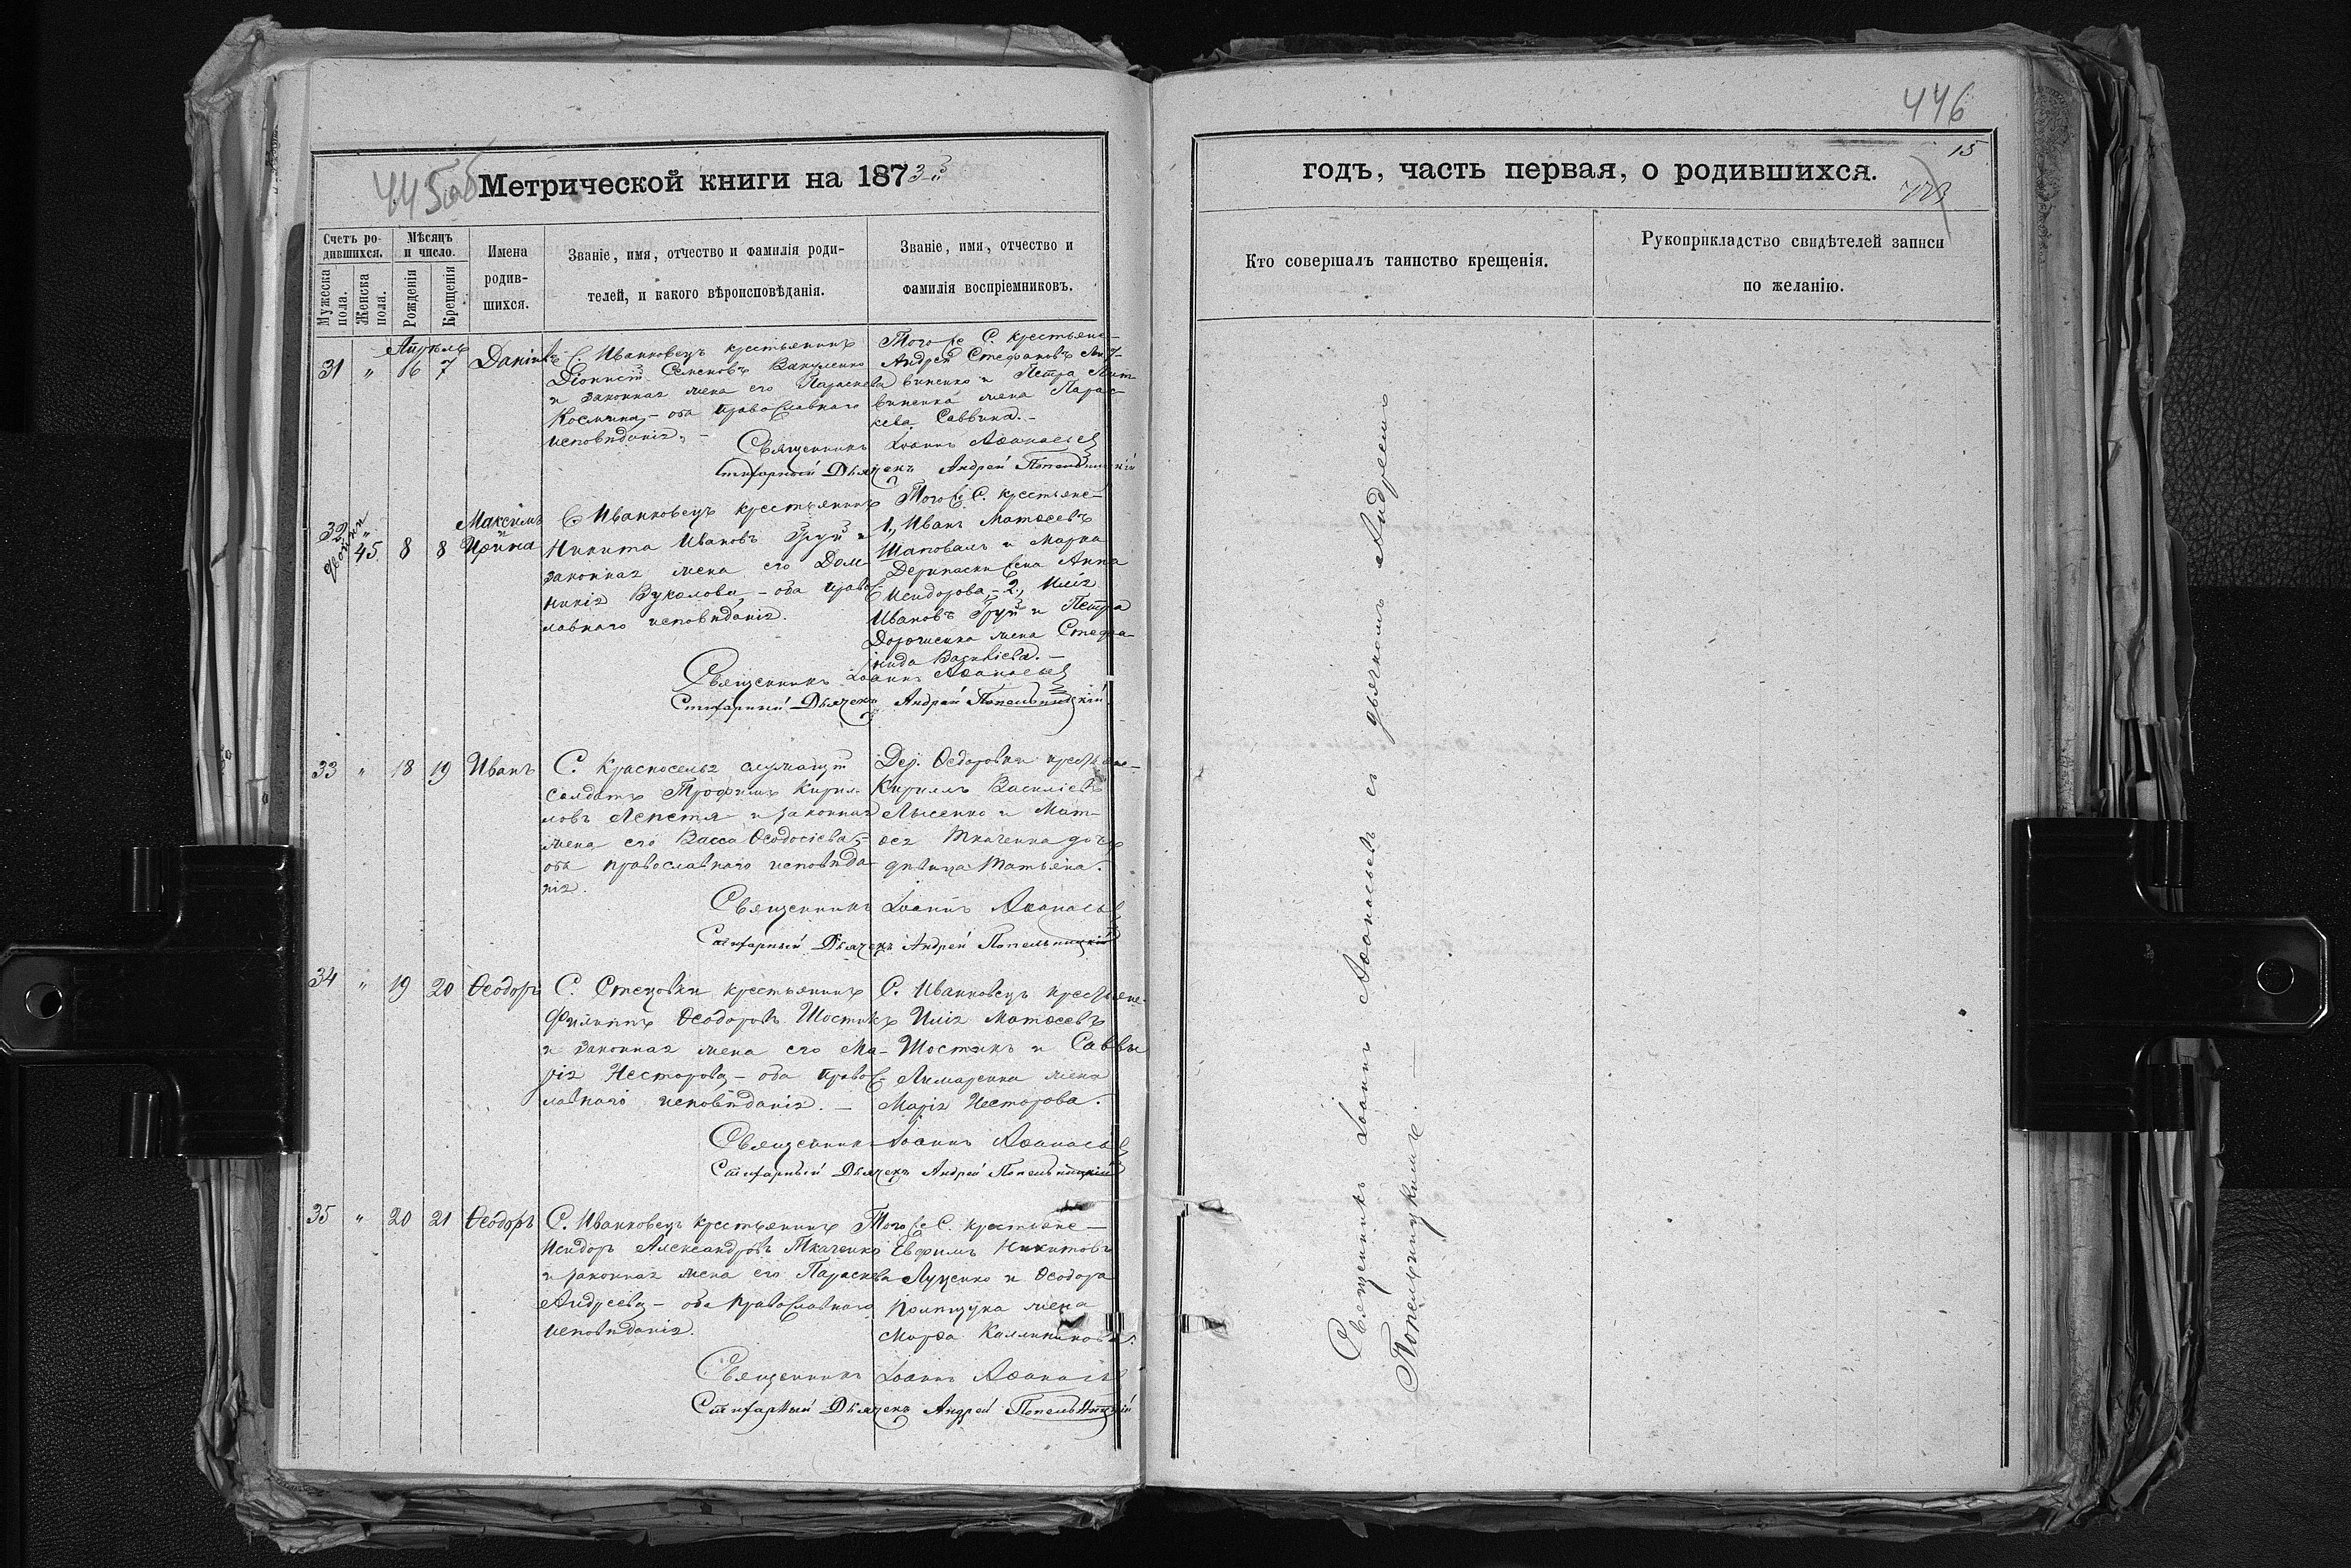 445об
Метрической книги на 1873
Счетъ ро-
дившихся.
Мужеска
пола.
Женска
пола.
Мѣсяцъ
и число.
Рожденія
Крещенія
Имена
родив-
шихся.
Званіе, имя, отчество и фамилія роди-
телей, и какого вѣроисповѣданія.
Званіе, имя, отчество и
фамилія воспріемниковъ.
Апрѣль
31 " 6 7 Даніилъ
С. Иванковецъ крестьянинъ
Діонисій Семеновъ Вакуленко
и законная жена его Параскева
Космина, – оба православнаго
исповѣданія. –
Того же С. крестьяне –
Андрей Стефановъ Лит-
виненко и Петра Лит-
виненка жена Парас-
кева Саввина. –
Священникъ Іоаннъ Аѳанасьевъ
Стихарный Дьячекъ Андрей Попельницкій
32 "
двойни 45 8 8
Максимъ
и
Ирина
С. Иванковецъ крестьянинъ
Никита Ивановъ Груй и
законная жена его Дом-
никія Вуколова, – оба правос-
лавнаго исповѣданія.
Того же С. крестьяне –
1., Иванъ Матѳеевъ
Шаповалъ и Марка
Дерипаски жена Анна
Исидорова, – 2., Илія
Ивановъ Груй и Петра
Дорошенка жена Стефа-
нида Василіева. –
Священникъ Іоаннъ Аѳанасьевъ
Стихарный Дьячекъ Андрей Попельницкій
33 " 18 19 Иванъ
С. Красноселья служащій
солдатъ Трофимъ Кирил-
ловъ Лепетя и законная
жена его Васса Ѳеодосіева, –
оба православнаго исповѣда-
нія.
Дер. Ѳедоровки крестьяне –
Кириллъ Василіевъ
Лысенко и Мат-
ѳея Ткаченка дочь
дѣвица Татьяна.
Священникъ Іоаннъ Аѳанасьевъ
Стихарный Дьячекъ Андрей Попельницкій
34 " 19 20 Ѳеодоръ
С. Стецовки крестьянинъ
Филиппъ Ѳеодоровъ Шостакъ
и законная жена его Ма-
рія Несторова, – оба правос-
лавнаго исповѣданія. –
С. Иванковецъ крестьяне –
Илія Матѳеевъ
Шостакъ и Саввы
Лимаренка жена
Марія Несторова.
Священникъ Іоаннъ Аѳанасьевъ
Стихарный Дьячекъ Андрей Попельницкій
35 " 20 21 Ѳеодоръ
С. Иванковецъ крестьянинъ
Исидоръ Александровъ Ткаченко
и законная жена его Параскева
Андреева, – оба православнаго
исповѣданія.
Того же С. крестьяне –
Евфимъ Никитовъ
Луценко и Ѳеодора
жена
Марѳа Каллиникова.
Священникъ Іоаннъ Аѳанасьевъ
Стихарный Дьячекъ Андрей Попельницкій
446
15
годъ, часть первая, о родившихся.
Кто совершалъ таинство крещенія.
Рукоприкладство свидѣтелей записи
по желанію.
Священникъ Іоаннъ Аѳанасьевъ съ дьячкомъ Андреемъ
Попельницкимъ. –